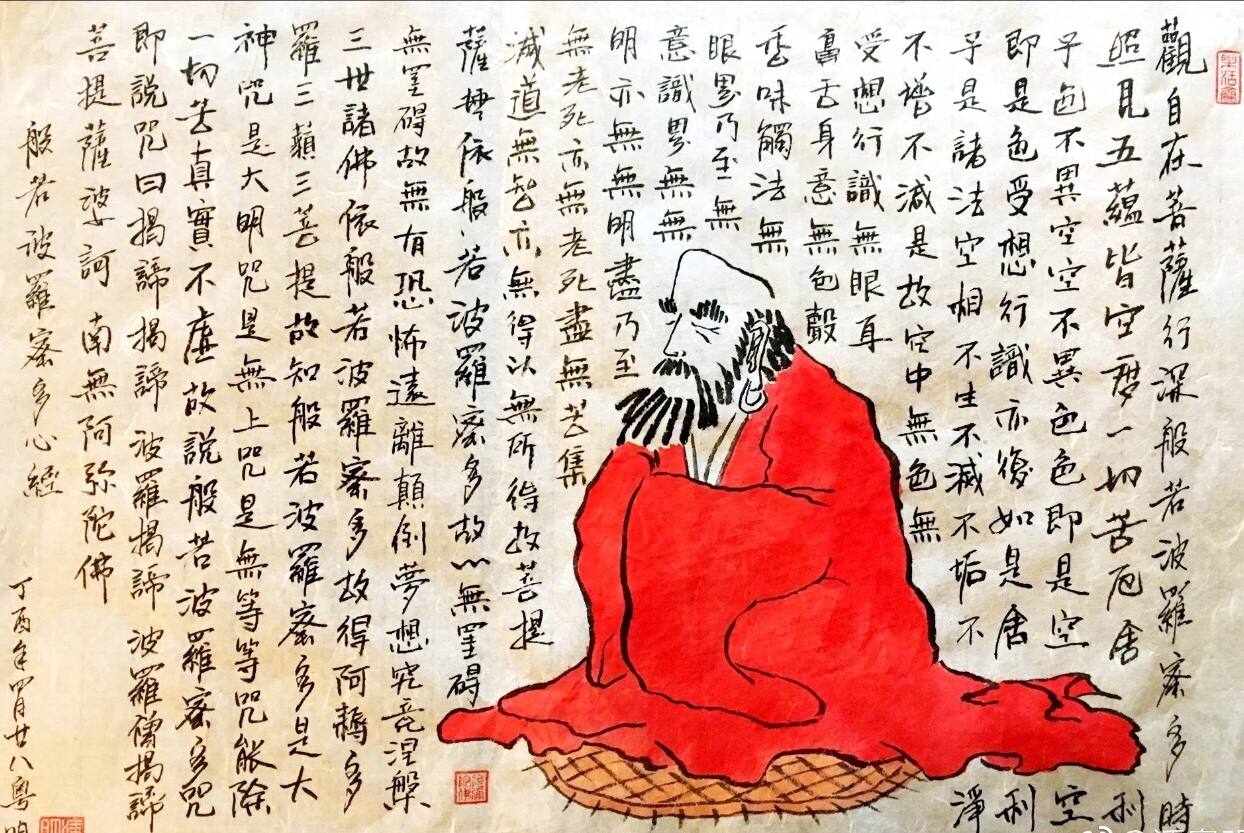 觀自在菩薩行深般若波羅蜜多時
照見五蘊皆空度一切苦厄舍利
子色不異空空不異色色即是空空
即是色受想行識亦復如是舍利
子是諸法空相不生不滅不垢不淨
不增不減是故空中無色無
受想行識無眼耳
鼻舌身意無色聲
香味觸法無
眼界乃至無
意識界無無
明亦無無明盡乃至
無老死亦無老死盡無苦集
滅道無智亦無得以無所得故菩提
薩埵依般若波羅蜜多故心無罣碍
無罣碍故無有恐怖遠離顛倒夢想究竟涅槃
三世諸佛依般若波羅蜜多故得阿耨多
羅三藐三菩提故知般若波羅蜜多是大
神咒是大明咒是無上咒是無等等咒能除
一切苦真實不虛故說般若波羅蜜多咒
即說咒曰揭諦揭諦波羅揭諦波羅僧揭諦
菩提薩婆訶 南無阿弥陀佛
般若波羅蜜多心經
丁酉年四月廿八粵明